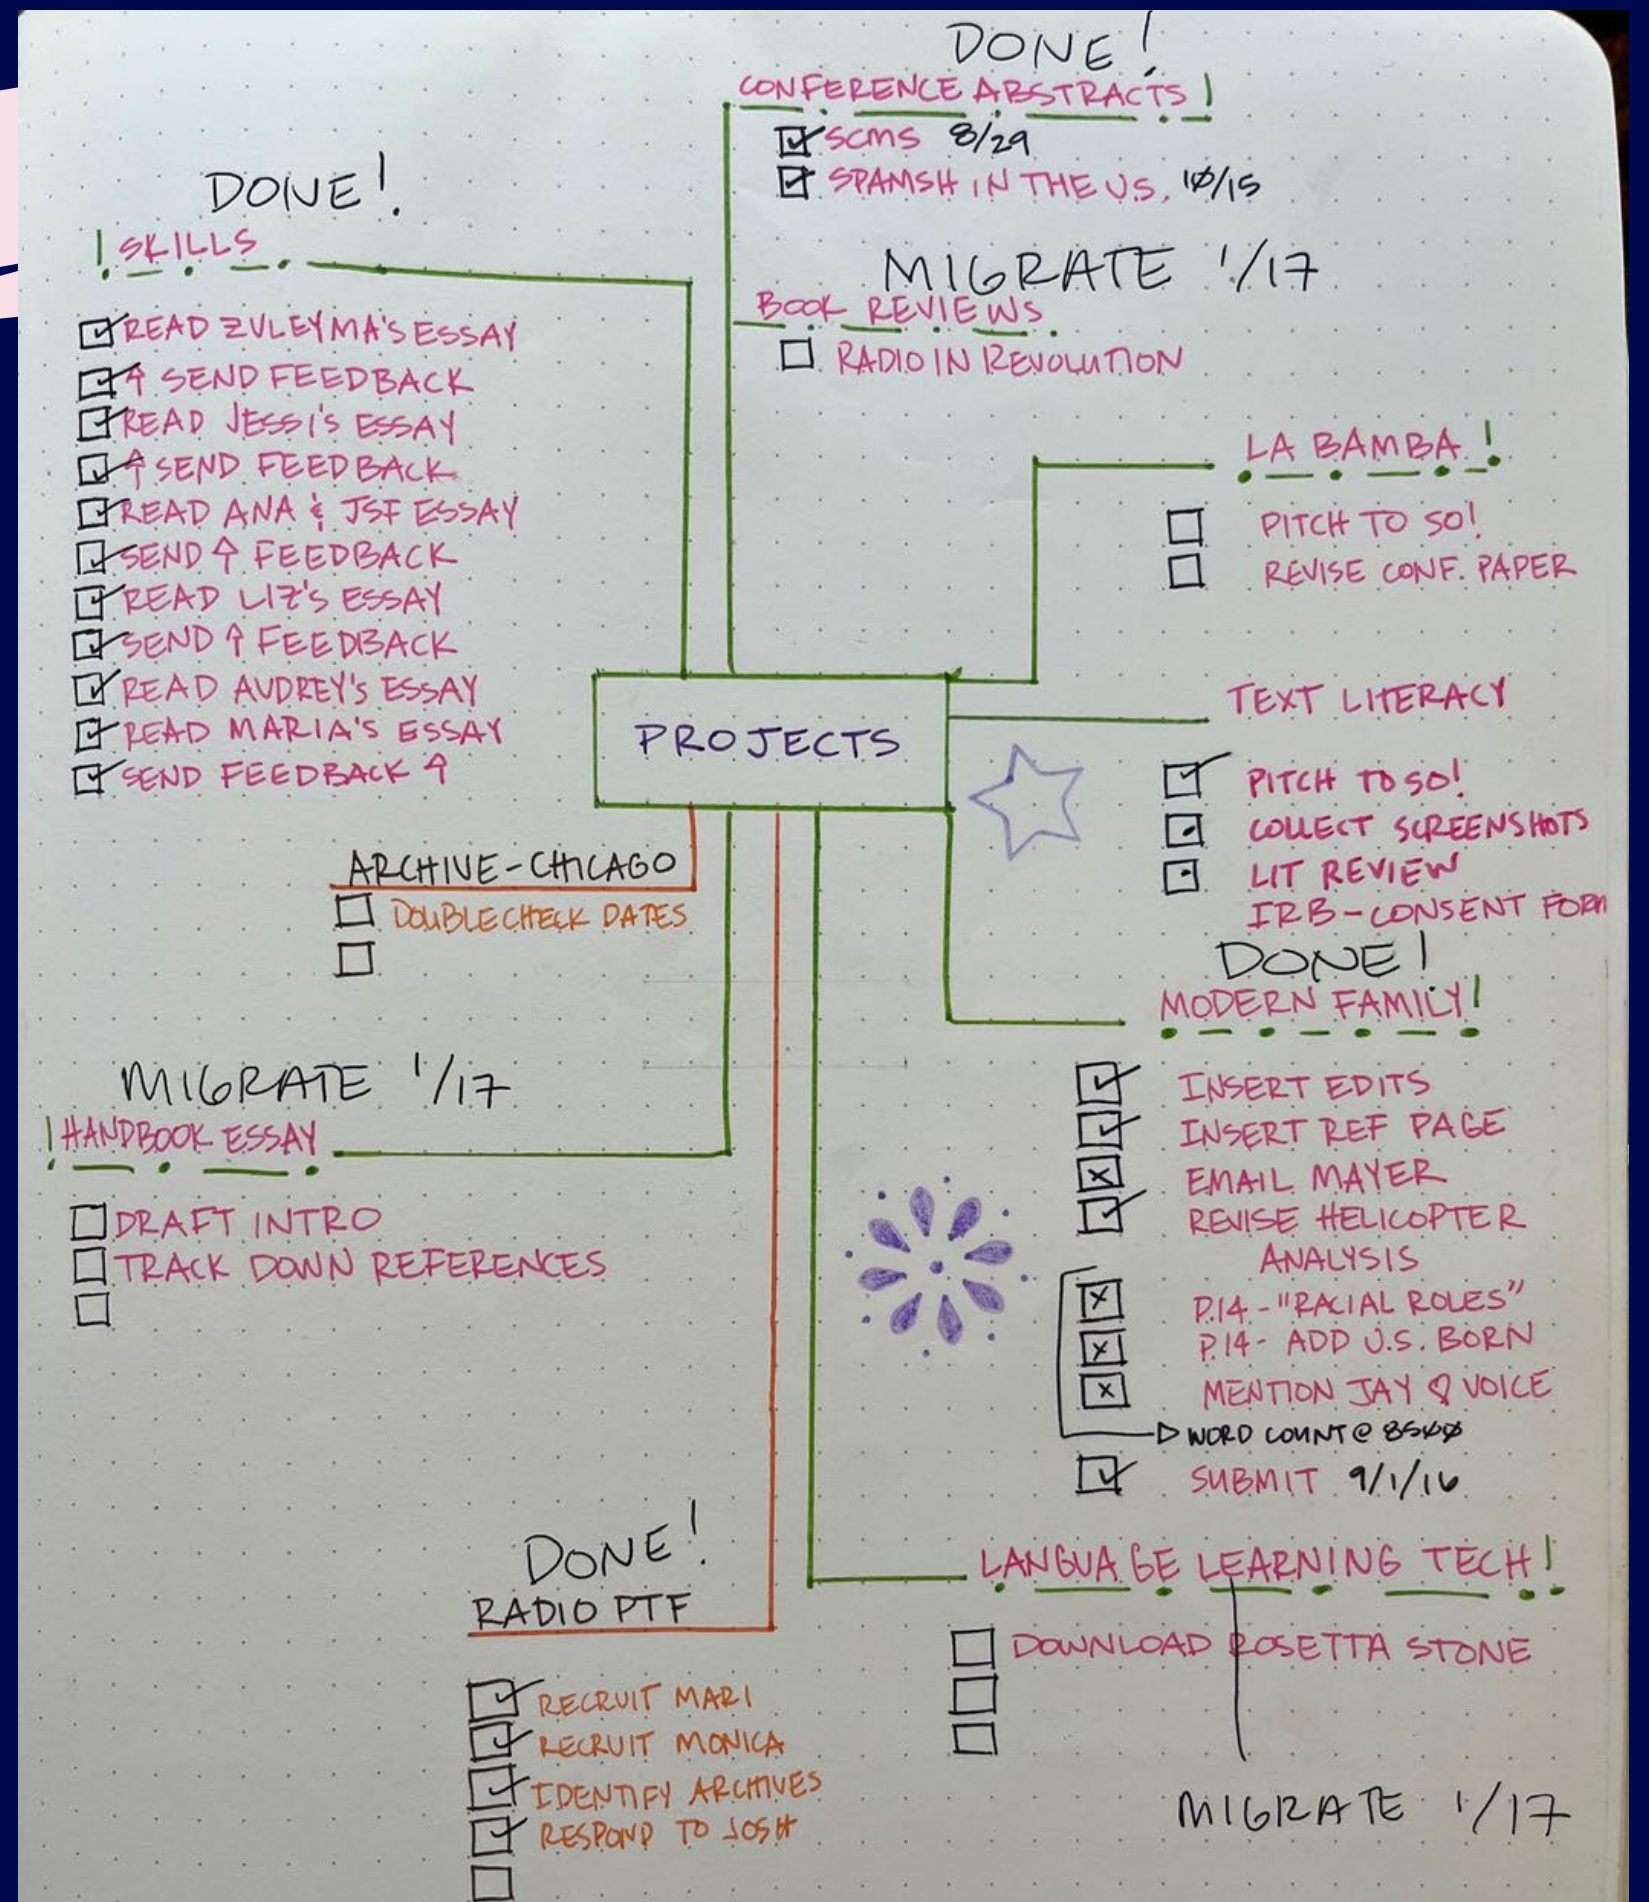 DONE!
CONFERENCE ABSTRACTS!
SCMS 8/29
SPANISH IN THE U.S. 10/15
DONE!
! SKILLS
READ ZULEYMA'S ESSAY
↑ SEND FEEDBACK
READ JESSI'S ESSAY
↑ SEND FEEDBACK
READ ANA & JSF ESSAY
SEND ↑ FEEDBACK
READ LIZ'S ESSAY
SEND ↑ FEEDBACK
READ AUDREY'S ESSAY
READ MARIA'S ESSAY
SEND FEEDBACK ↑
MIGRATE 1/17
BOOK REVIEWS
RADIO IN REVOLUTION
LA BAMBA!
PITCH TO SO!
REVISE CONF. PAPER
PROJECTS
TEXT LITERACY
PITCH TO SO!
COLLECT SCREENSHOTS
LIT REVIEW
IRB-CONSENT FORM
ARCHIVE-CHICAGO
DOUBLECHECK DATES
DONE!
MODERN FAMILY!
INSERT EDITS
INSERT REF PAGE
EMAIL MAYER
REVISE HELICOPTER
ANALYSIS
P.14 - "RACIAL ROLES"
P.14 - ADD U.S. BORN
MENTION JAY ♡ VOICE
WORD COUNT @ 8500
SUBMIT 9/1/16
MIGRATE 1/17
! HANDBOOK ESSAY
DRAFT INTRO
TRACK DOWN REFERENCES
DONE!
RADIO PTF
RECRUIT MARI
RECRUIT MONICA
IDENTIFY ARCHIVES
RESPOND TO JOSH
LANGUAGE LEARNING TECH!
DOWNLOAD ROSETTA STONE
MIGRATE 1/17